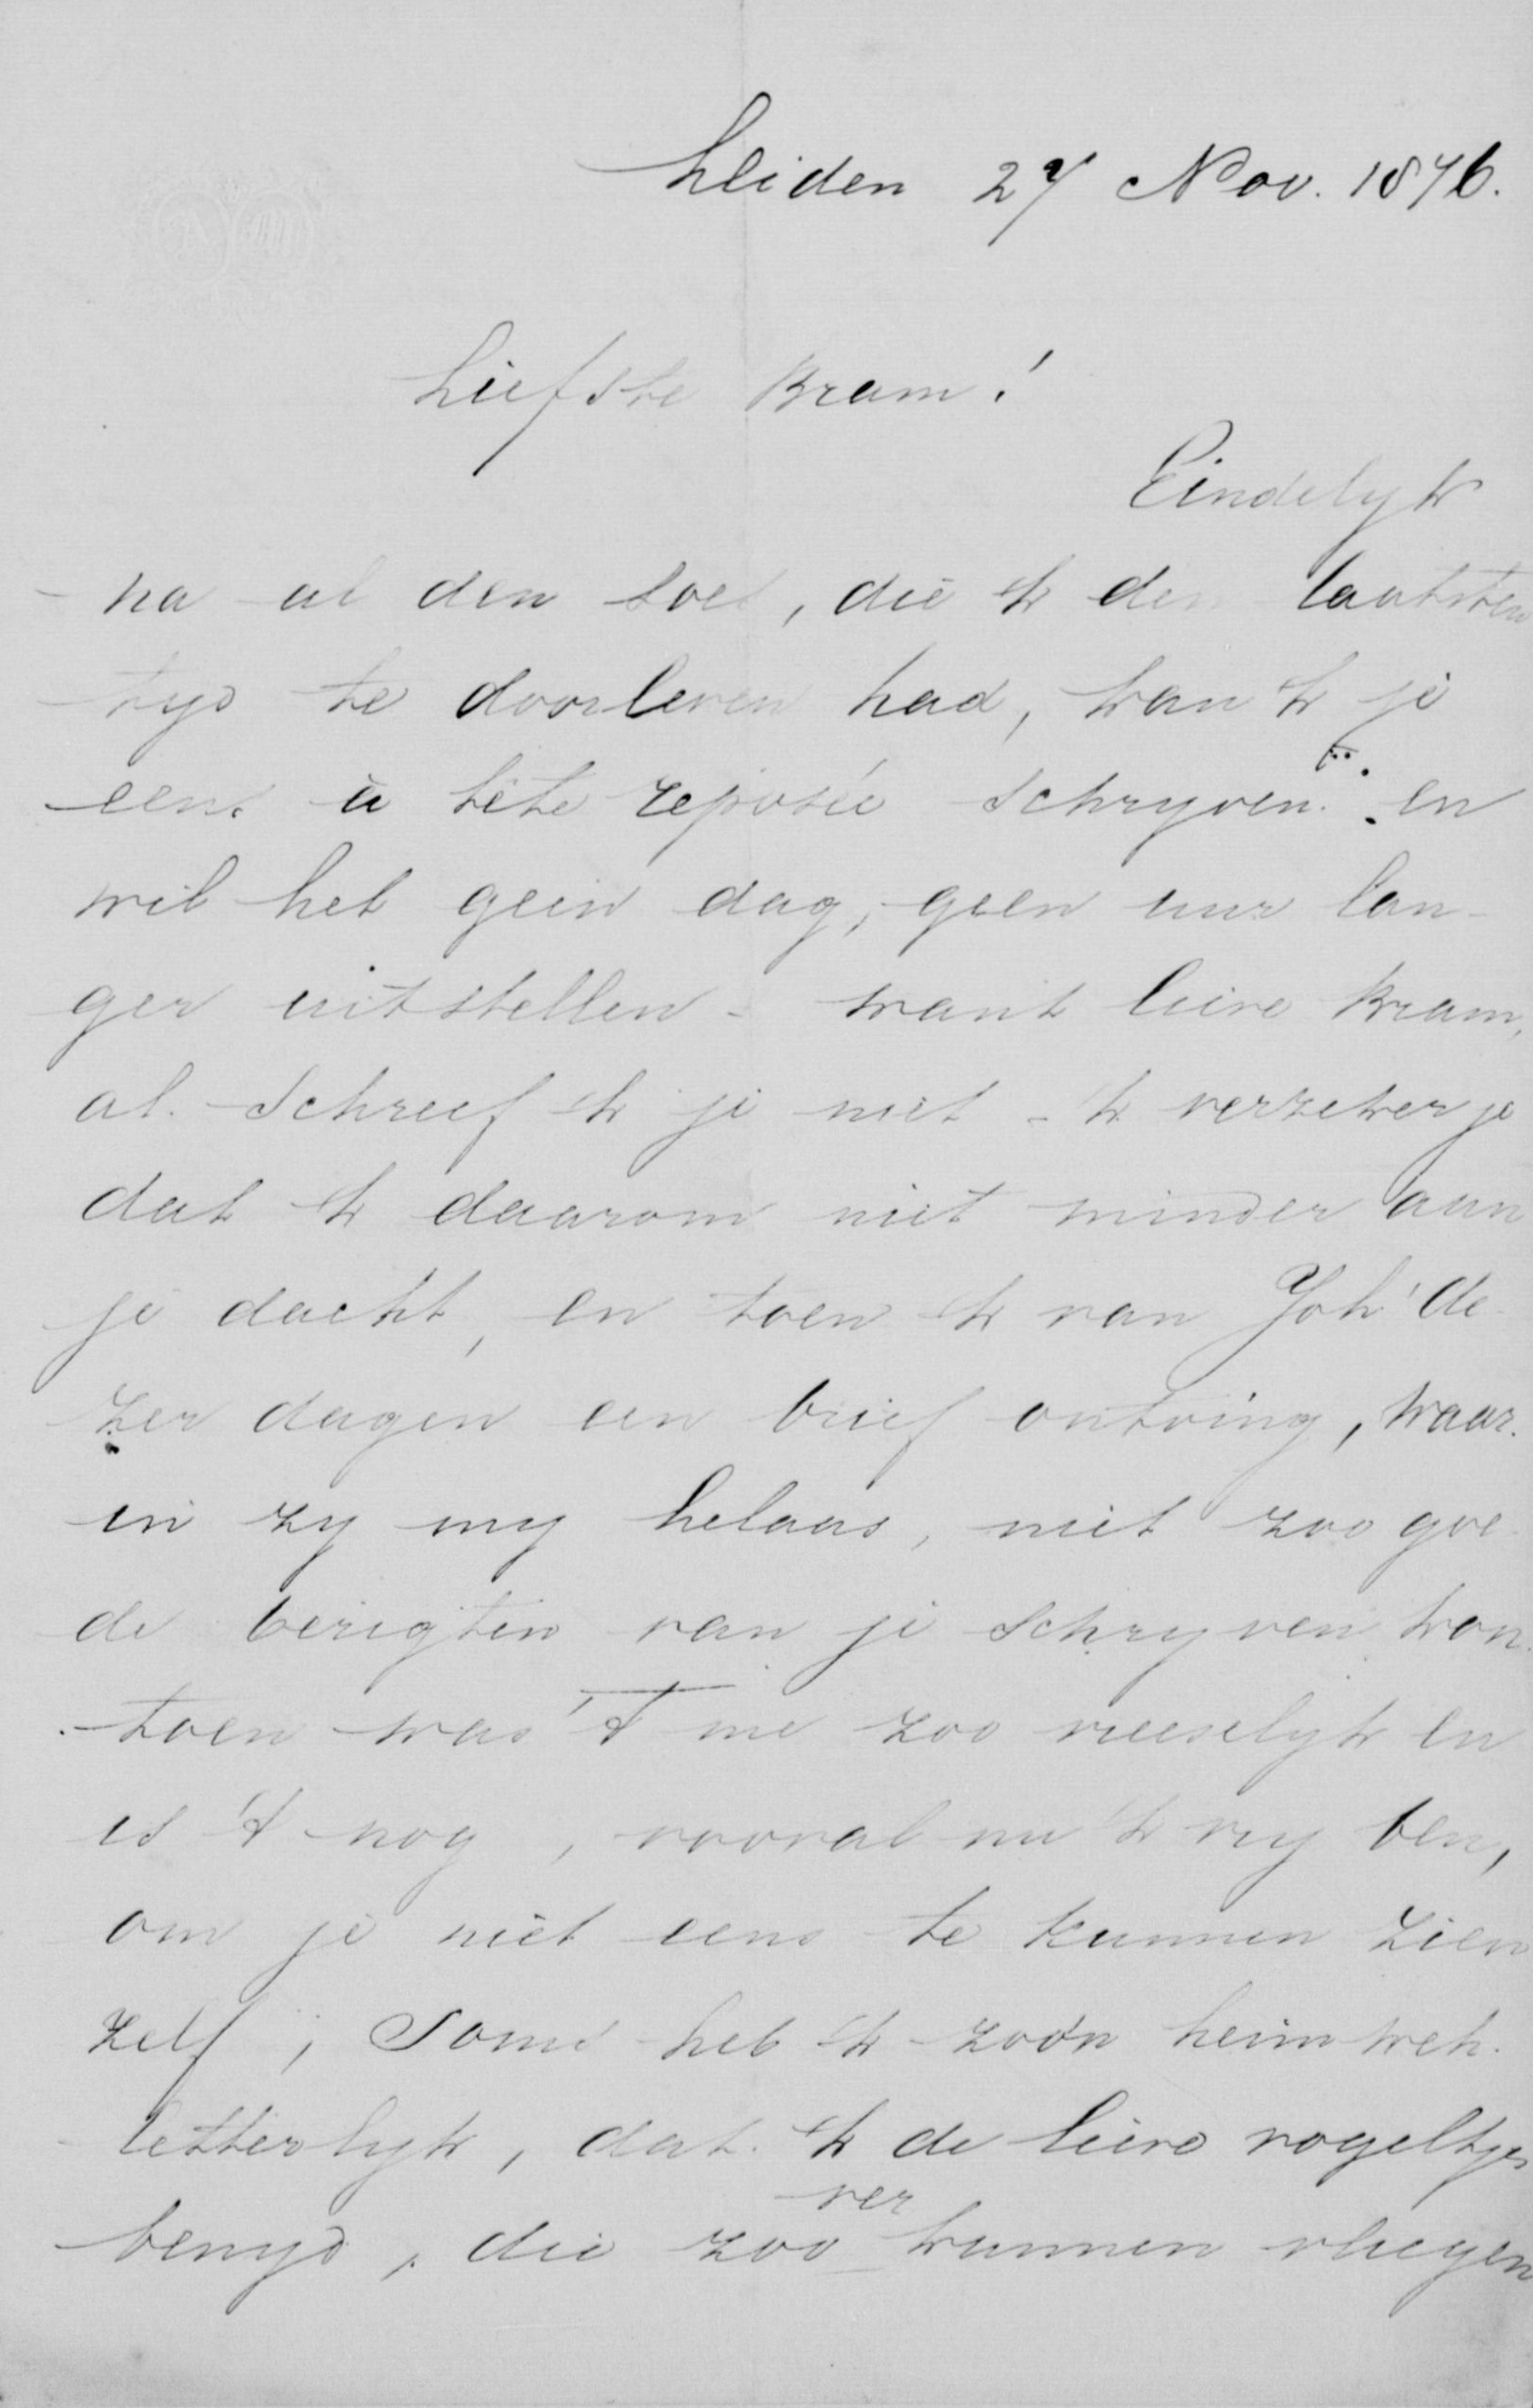 Leiden 27 Nov. 1876.
Liefste Bram!
Eindelyk
na al den toer, die 'k den laatsten
tyd te doorleven had, kan 'k je
eens à tête reposée schryven. en
wil het geen dag, geen uur lan-
ger uitstellen - want lieve Bram,
al schreef 'k je niet - 'k verzeker je
dat 'k daarom niet minder aan
je dacht, en toen 'k van Joh' de-
zer dagen een brief ontving, waar-
in zy my helaas, niet zoo goe-
de berigten van je schryven kon.
toen was 't me zoo vreeselyk en
is 't nog, vooral nu 'k vry ben,
om je niet eens te kunnen zien
zelf; Soms heb 'k zoo'n heimweh.
letterlyk, dat 'k de lieve vogeltjes
benyd, die zoo ver kunnen vliegen